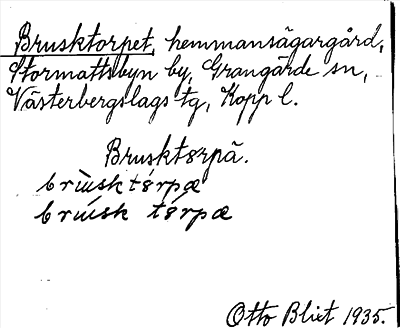 Brusktorpet, hemmansägargård,
Stormattsbyn by, Grangärde sn,
Västerbergslags tg, Kopp l.
Brusktørpä.
brùsktórpæ
brúsk tórpæ
Otto Blixt 1935.